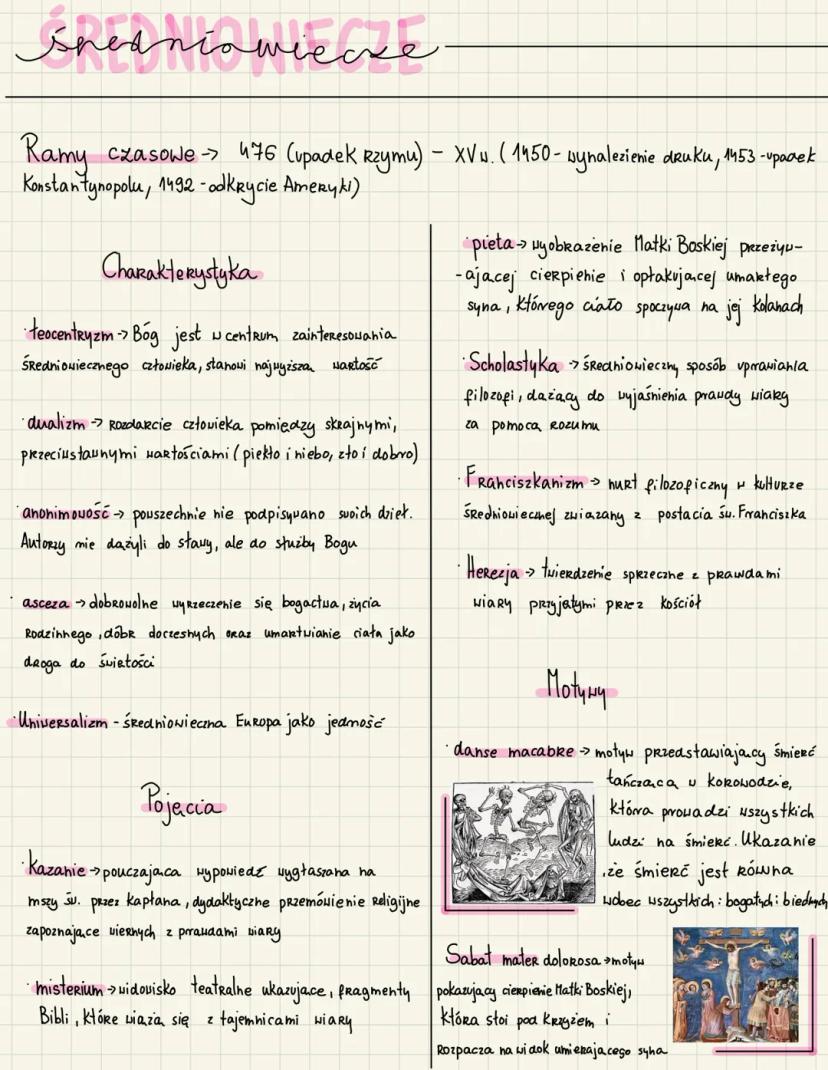 ŚREDNIOWIECZE
średniowiecze
Ramy czasowe -> 476 (upadek Rzymu) - XV w. (1450 - wynalezienie druku, 1453 - upadek
Konstantynopolu, 1492 - odkrycie Ameryki)
Charakterystyka
· teocentryzm -> Bóg jest w centrum zainteresowania
średniowiecznego człowieka, stanowi najwyższą wartość
· dualizm -> rozdarcie człowieka pomiędzy skrajnymi,
przeciwstawnymi wartościami (piekło i niebo, zło i dobro)
· anonimowość -> powszechnie nie podpisywano swoich dzieł.
Autorzy nie dążyli do sławy, ale do służby Bogu
· asceza -> dobrowolne wyrzeczenie się bogactwa, życia
rodzinnego, dóbr doczesnych oraz umartwianie ciała jako
droga do świętości
· Uniwersalizm - średniowieczna Europa jako jedność
Pojęcia
· Kazanie -> pouczająca wypowiedź wygłaszana na
mszy św. przez kapłana, dydaktyczne przemówienie religijne
zapoznające wiernych z prawdami wiary
· misterium -> widowisko teatralne ukazujące, fragmenty
Bibli, które wiążą się z tajemnicami wiary
· pieta -> wyobrażenie Matki Boskiej przeżyw-
-ającej cierpienie i opłakującej umarłego
syna, którego ciało spoczywa na jej kolanach
· Scholastyka -> średniowieczny sposób uprawiania
filozofi, dążący do wyjaśnienia prawdy wiary
za pomocą rozumu
· Franciszkanizm -> nurt filozoficzny w kulturze
średniowiecznej związany z postacią św. Franciszka
· Herezja -> twierdzenie sprzeczne z prawdami
wiary przyjętymi przez kościół
Motywy
· danse macabre -> motyw przedstawiający śmierć
tańczącą w korowodzie,
która prowadzi wszystkich
ludzi na śmierć. Ukazanie
,że śmierć jest równa
wobec wszystkich: bogatych i biednych
Sabat mater dolorosa -> motyw
pokazujący cierpienie Matki Boskiej,
która stoi pod krzyżem i
rozpacza na widok umierającego syna